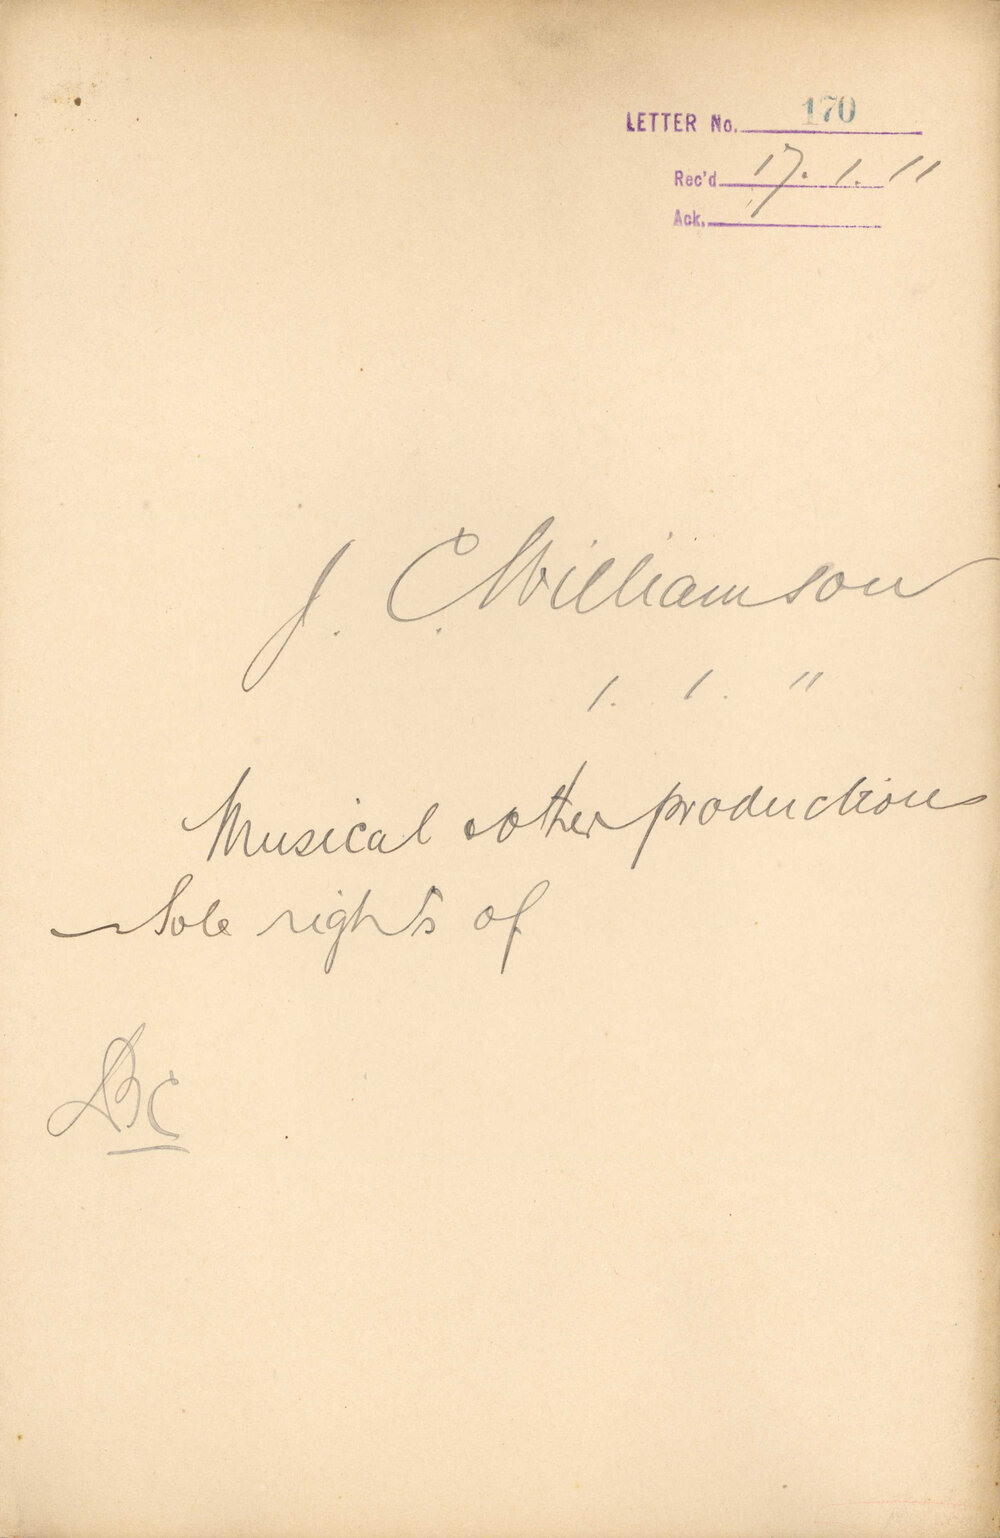 LETTER No. 170
Rec'd 17. 1. 11
Ack.
J. C. Williamson
1. 1. 11
Musical & other productions
Sole rights of